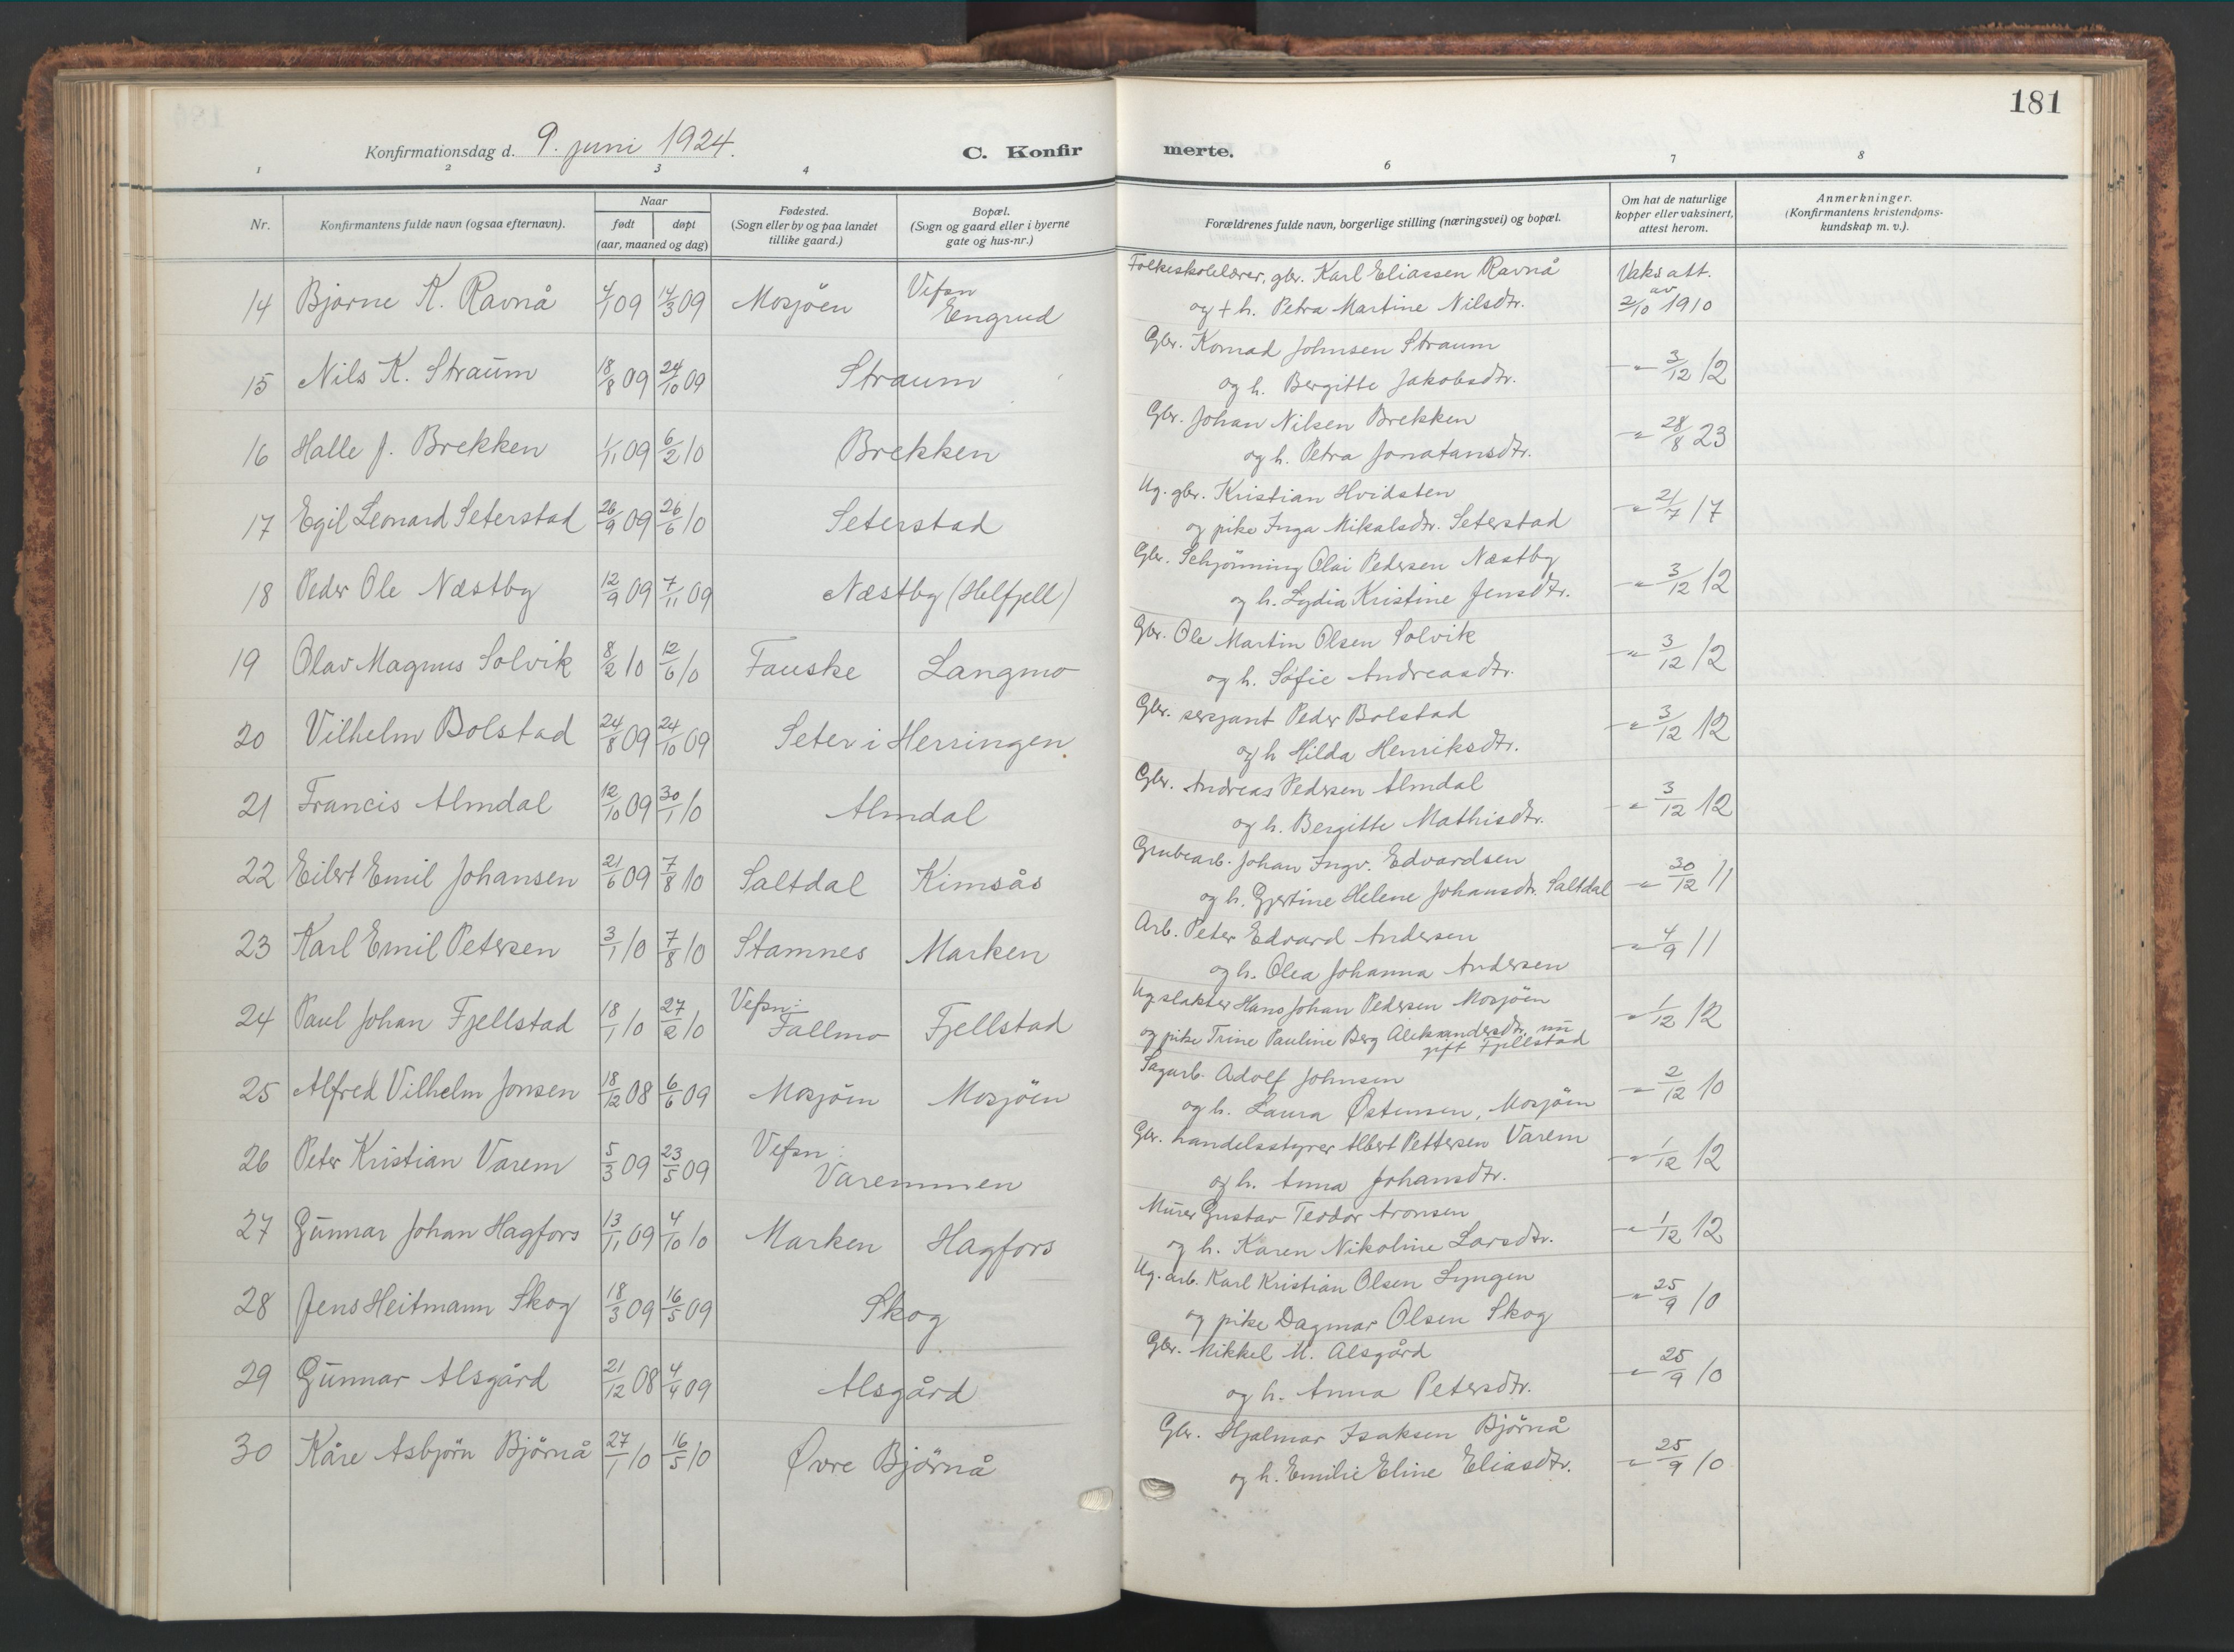 181
Konfirmationsdag d. 9. juni 1924.
C. Konfirmerte.
1 2 3 4 6 7 8
Nr.
Konfirmantens fulde navn (ogsaa efternavn).
Naar
født døpt
(aar, maaned og dag)
Fødested.
(Sogn eller by og paa landet
tillike gaard.)
Bopæl.
(Sogn og gaard eller i byerne
gate og hus-nr.)
Forældrenes fulde navn, borgerlige stilling (næringsvei) og bopæl.
Om hat de naturlige
kopper eller vaksinert,
attest herom.
Anmerkninger.
(Konfirmantens kristendoms-
kundskap m. v.).
14 Bjarne K. Ravnå 4/1 09 14/3 09 Mosjöen Vefsn Engrud
Folkeskolelærer, gbr. Karl Eliassen Ravnå
og + h. Petra Martine Nilsdtr.
Vaks att. av 2/10 1910
15 Nils K. Straum 18/8 09 24/10 09 Straum
Gbr. Konrad Johnsen Straum
og h. Bergitte Jakobsdtr.
-"- 3/12 12
16 Halle J. Brekken 1/11 09 6/2 10 Brekken
Gbr. Johan Nilsen Brekken
og h. Petra Jonatansdtr.
-"- 28/8 23
17 Egil Leonard Seterstad 26/9 09 26/6 10 Seterstad
Ug. gbr. Kristian Hvidsten
og pike Inga Mikalsdtr. Seterstad
-"- 21/7 17
18 Peder Ole Næstby 12/9 09 7/11 09 Næstby (Helfjell)
Gbr. Schjönning Olai Pedersen Næstby
og h. Lydia Kristine Jensdtr.
-"- 3/12 12
19 Olav Magnus Solvik 8/2 10 12/6 10 Fauske Langmo
Gbr. Ole Martin Olsen Solvik
og h. Sofie Andreasdtr.
-"- 3/12 12
20 Vilhelm Bolstad 24/8 09 24/10 09 Seter i Herringen
Gbr. sersjant Peder Bolstad
og h Hilda Henriksdtr.
-"- 3/12 12
21 Francis Almdal 12/10 09 30/1 10 Almdal
Gbr. Andreas Pedersen Almdal
og h. Bergitte Mathisdtr.
-"- 3/12 12
22 Eilert Emil Johansen 21/6 09 7/8 10 Saltdal Kimsås
Grubearb. Johan Ingv. Edvardsen
og h. Gjertine Helene Johansdtr. Saltdal
-"- 30/12 11
23 Karl Emil Petersen 3/1 10 7/8 10 Stamnes Marken
Arb. Peter Edvard Andersen
og h. Olea Johanna Andersen
-"- 4/9 11
24 Paul Johan Fjellstad 18/1 10 27/2 10 Vefsn: Fallmo Fjellstad
Ug. slakter Hans Johan Pedersen Mosjöen
og pike Trine Pauline Berg Aleksandersdtr, nu
gift Fjellstad
-"- 1/12 12
25 Alfred Vilhelm Jonsen 18/12 08 6/6 09 Mosjöen Mosjöen
Sagarb. Adolf Johnsen
og h. Laura Østensen, Mosjöen
-"- 2/12 10
26 Peter Kristian Varem 5/3 09 23/5 09 Vefsn: Varemmen
Gbr. handelsstyrer Albert Pettersen Varem
og h. Anna Johansdtr.
-"- 1/12 12
27 Gunnar Johan Hagfors 13/11 09 4/10 10 Marken Hagfors
Murer Gustav Teodor Aronsen
og h. Karen Nikoline Larsdtr.
-"- 1/12 12
28 Jens Heitmann Skog 18/3 09 16/5 09 Skog
Ug. arb. Karl Kristian Olsen Lyngen
og pike Dagmar Olsen Skog
-"- 25/9 10
29 Gunnar Alsgård 21/12 08 4/4 09 Alsgård
Gbr. Mikkel M. Alsgård
og h. Anna Petersdtr.
-"- 25/9 10
30 Kåre Asbjörn Björnå 27/1 10 16/5 10 Øvre Björnå
Gbr. Hjalmar Isaksen Björnå
og h. Emilie Eline Eliasdtr.
-"- 25/9 10